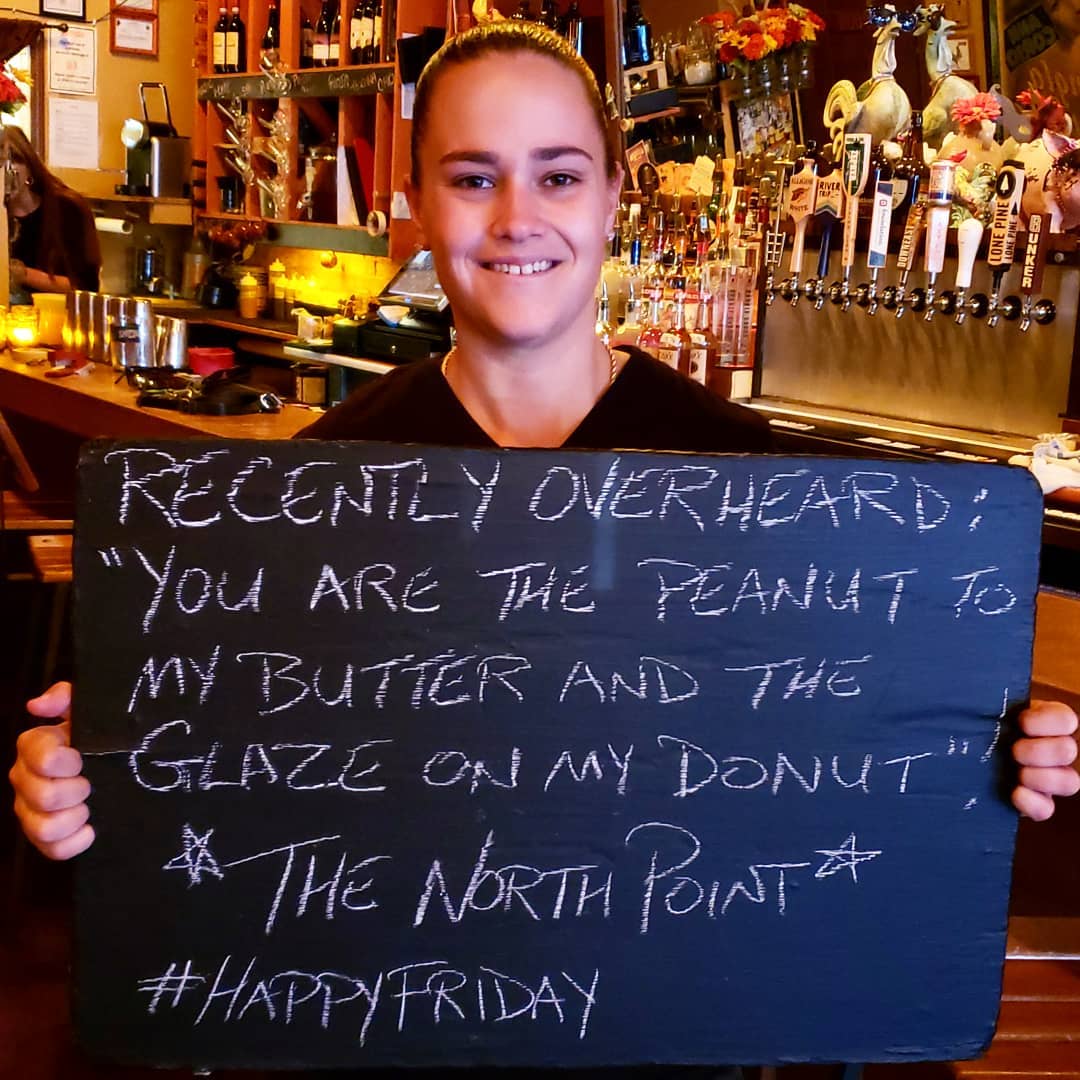 RECENTLY OVERHEARD:
"YOU ARE THE PEANUT TO
MY BUTTER AND THE
GLAZE ON MY DONUT"!
THE NORTH POINT
#HAPPYFRIDAY
ALLAGASH
WHITE
RIVER
TRIP
LONE PINE
BUNKER